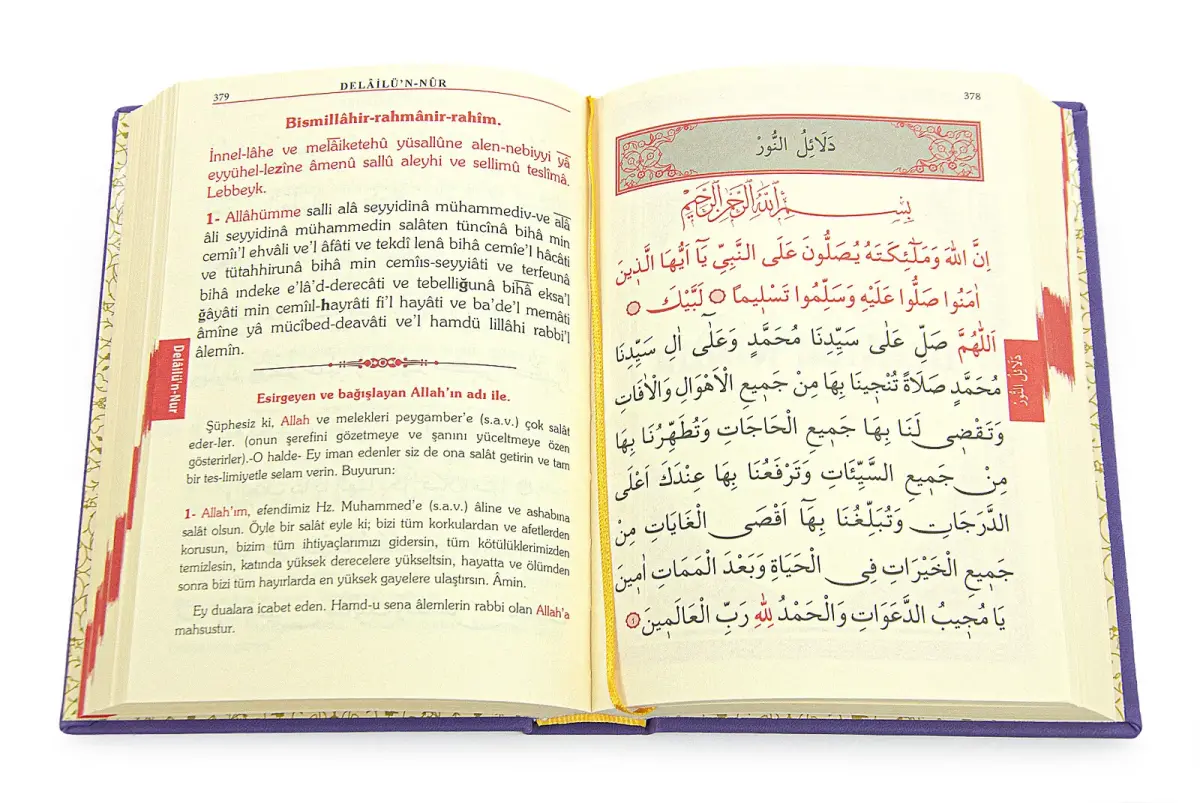 379
DELÂİLÜ'N-NÛR
Bismillâhir-rahmânir-rahîm.
İnnel-lâhe ve melâiketehû yüsallûne alen-nebiyyi yâ
eyyühel-lezîne âmenû sallû aleyhi ve sellimû teslîmâ.
Lebbeyk.
1- Allâhümme salli alâ seyyidinâ mühammediv-ve alâ
âli seyyidinâ mühammedin salâten tüncînâ bihâ min
cemiı'l ehvâli ve'l âfâti ve tekdî lenâ bihâ cemîe'l hâcâti
ve tütahhirunâ bihâ min cemiıs-seyyiâti ve terfeunâ
bihâ ındeke e'lâ'd-derecâti ve tebelliğunâ bihâ eksa'l
ğâyâti min cemiîl-hayrâti fi'l hayâti ve ba'de'l memâti
âmîne yâ mücîbed-deavâti ve'l hamdü lillâhi rabbi'l
âlemîn.
Esirgeyen ve bağışlayan Allah'ın adı ile.
Şüphesiz ki, Allah ve melekleri peygamber'e (s.a.v.) çok salât
eder-ler. (onun şerefini gözetmeye ve şanını yüceltmeye özen
gösterirler).-O halde- Ey iman edenler siz de ona salât getirin ve tam
bir tes-limiyetle selam verin. Buyurun:
1- Allah'ım, efendimiz Hz. Muhammed'e (s.a.v.) âline ve ashabına
salât olsun. Öyle bir salât eyle ki; bizi tüm korkulardan ve afetlerden
korusun, bizim tüm ihtiyaçlarımızı gidersin, tüm kötülüklerimizden
temizlesin, katında yüksek derecelere yükseltsin, hayatta ve ölümden
sonra bizi tüm hayırlarda en yüksek gayelere ulaştırsın. Âmin.
Ey dualara icabet eden. Hamd-u sena âlemlerin rabbi olan Allah'a
mahsustur.
Delailü'n-Nur
378
دَلَائِلُ النُّورْ
بِسْمِ اللهِ الرَّحْمٰنِ الرَّحِيمِ
اِنَّ اللهَ وَمَلٰٓئِكَتَهُ يُصَلُّونَ عَلَى النَّبِيِّ يَٓا اَيُّهَا الَّذِينَ
اٰمَنُوا صَلُّوا عَلَيْهِ وَسَلِّمُوا تَسْلِيمًا ۞ لَبَّيْكَ ۞
اَللّٰهُمَّ صَلِّ عَلٰى سَيِّدِنَا مُحَمَّدٍ وَعَلٰٓى اٰلِ سَيِّدِنَا
مُحَمَّدٍ صَلَاةً تُنْجِينَا بِهَا مِنْ جَمِيعِ الْاَهْوَالِ وَالْاٰفَاتِ
وَتَقْضِى لَنَا بِهَا جَمِيعِ الْحَاجَاتِ وَتُطَهِّرُنَا بِهَا
مِنْ جَمِيعِ السَّيِّئَاتِ وَتَرْفَعُنَا بِهَا عِنْدَكَ اَعْلَى
الدَّرَجَاتِ وَتُبَلِّغُنَا بِهَٓا اَقْصَى الْغَايَاتِ مِنْ
جَمِيعِ الْخَيْرَاتِ فِى الْحَيَاةِ وَبَعْدَ الْمَمَاتِ اٰمِينَ
يَا مُجِيبُ الدَّعَوَاتِ وَالْحَمْدُ لِلّٰهِ رَبِّ الْعَالَمِينَ ١
دَلَائِلُ النُّورْ